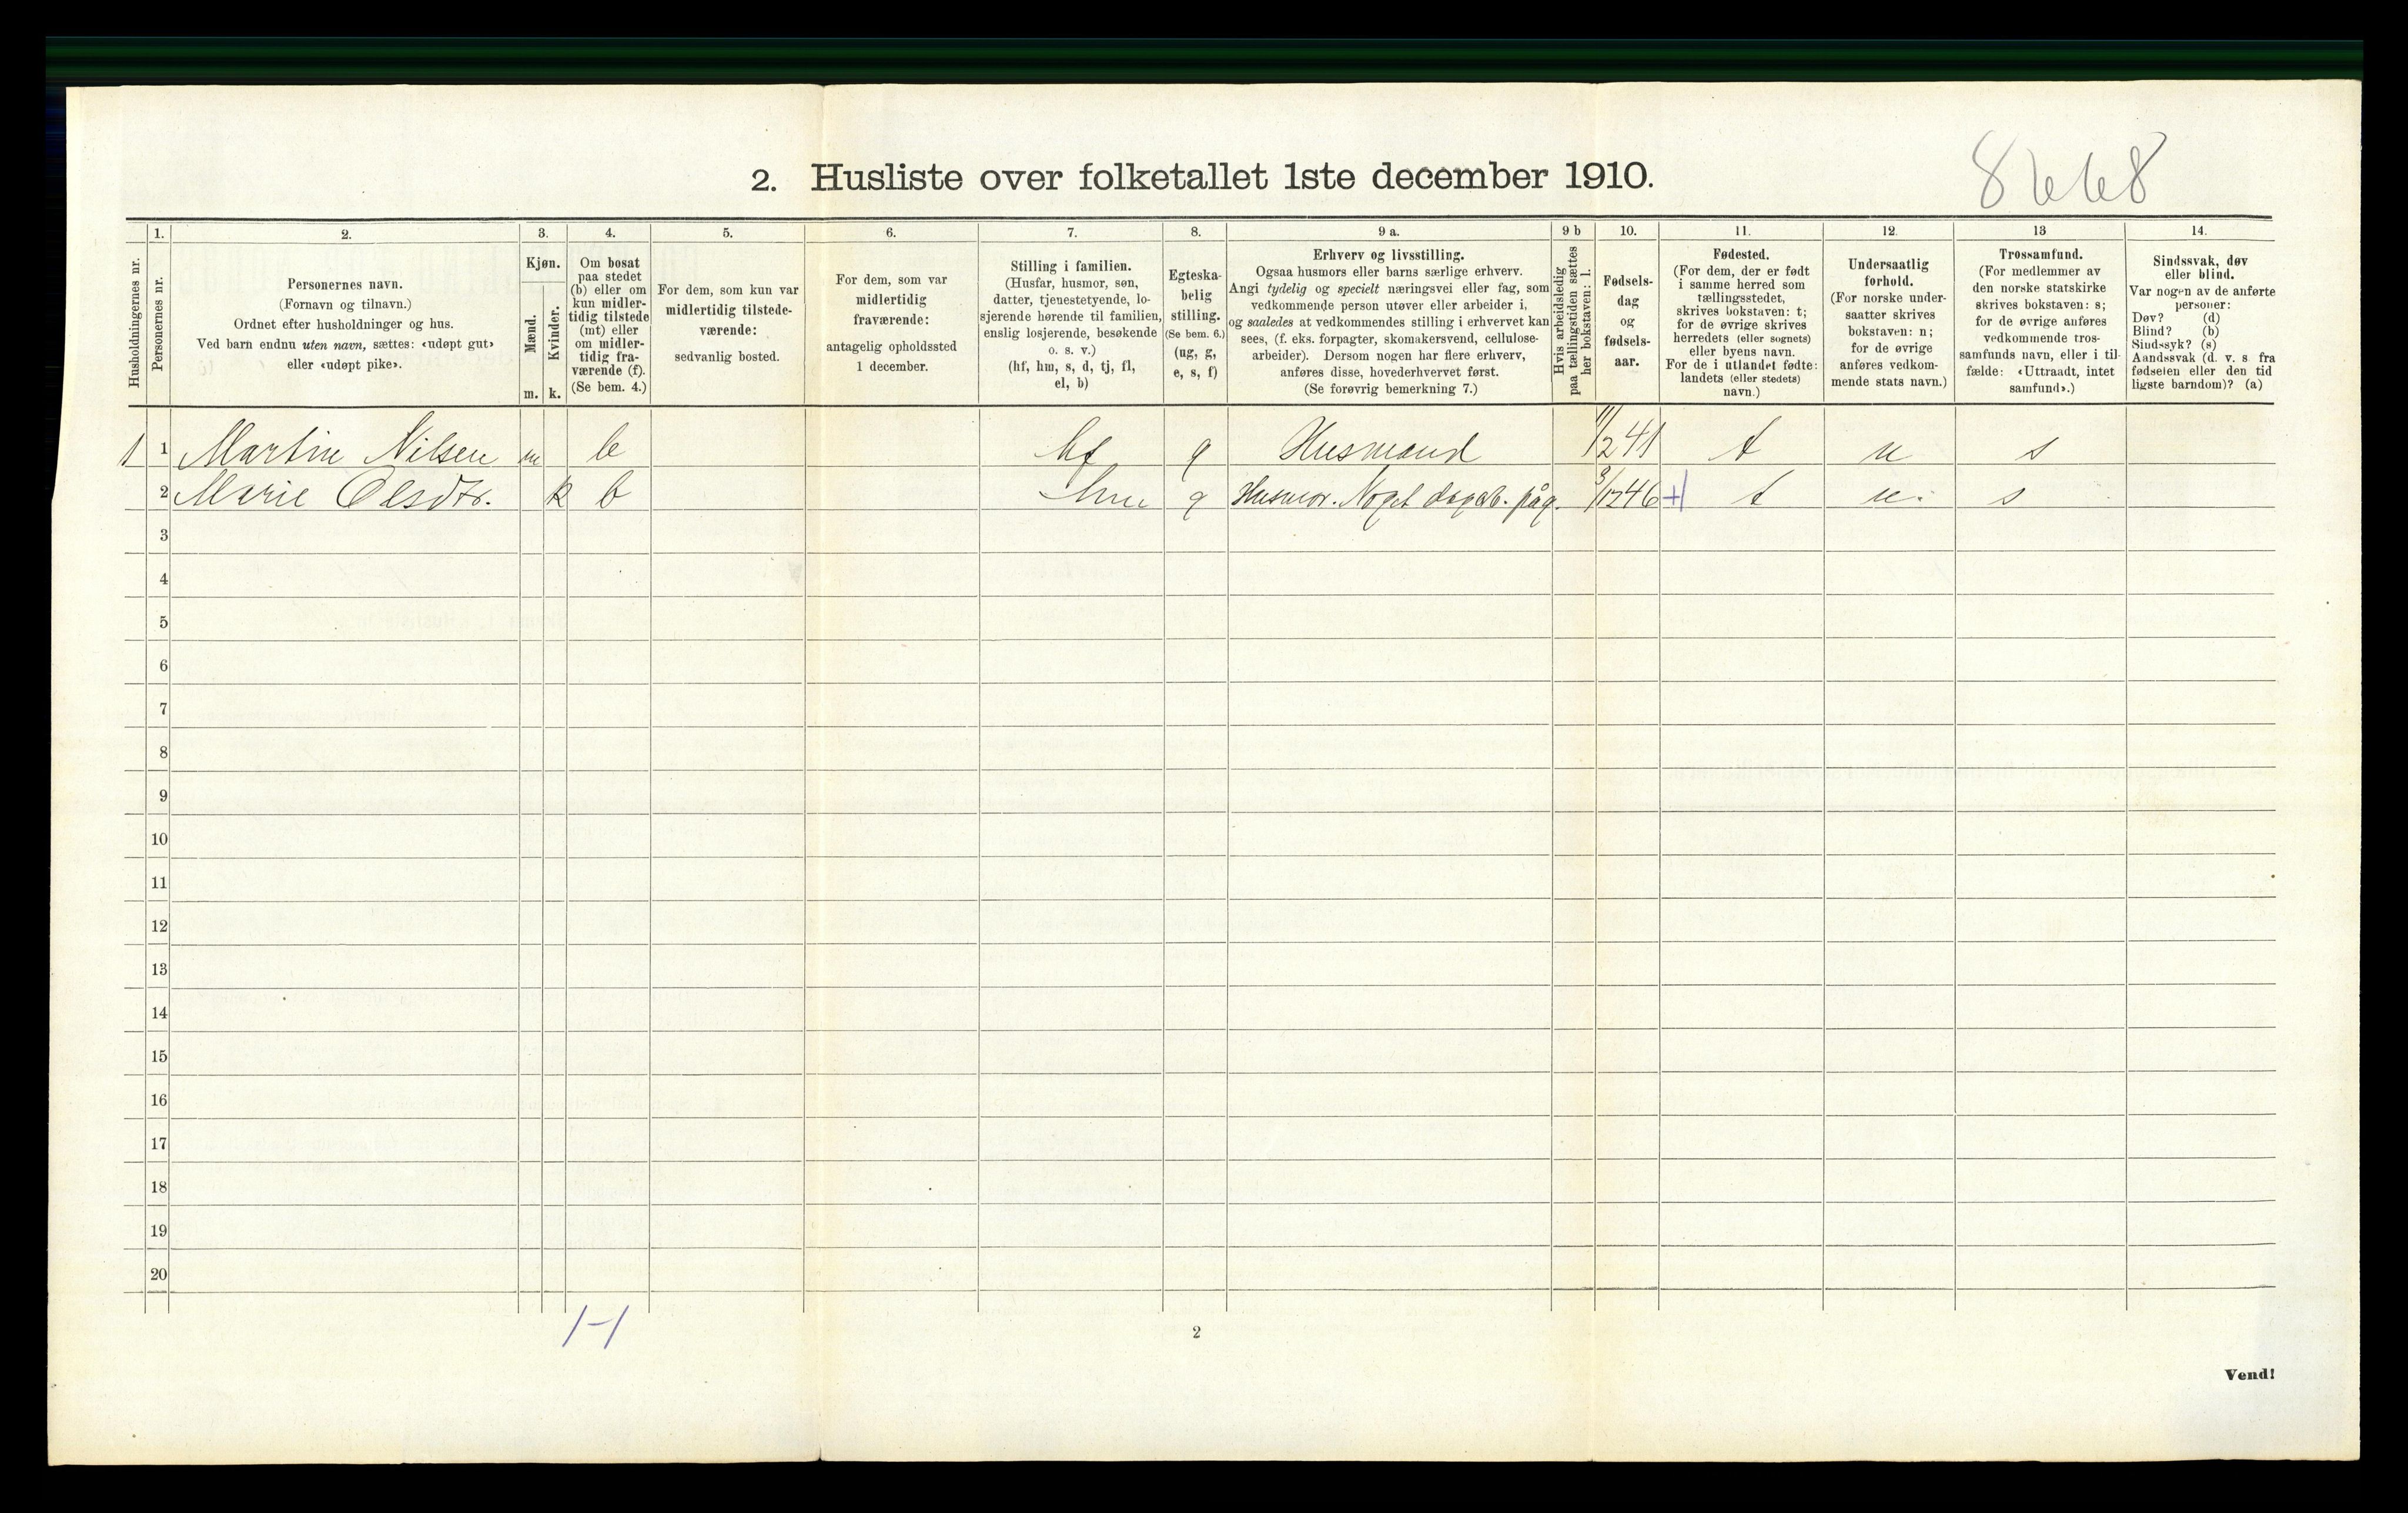 8668
2. Husliste over folketallet 1ste december 1910.
Husholdningernes nr.
1.
Personernes nr.
2.
Personernes navn.
(Fornavn og tilnavn.)
Ordnet efter husholdninger og hus.
Ved barn endnu uten navn, sættes: «udøpt gut»
eller «udøpt pike».
3.
Kjøn.
Mænd.
Kvinder.
m. k.
4.
Om bosat
paa stedet
(b) eller om
kun midler-
tidig tilstede
(mt) eller
om midler-
tidig fra-
værende (f).
(Se bem. 4.)
5.
For dem, som kun var
midlertidig tilstede-
værende:
sedvanlig bosted.
6.
For dem, som var
midlertidig
fraværende:
antagelig opholdssted
1 december.
7.
Stilling i familien.
(Husfar, husmor, søn,
datter, tjenestetyende, lo-
sjerende hørende til familien,
enslig losjerende, besøkende
o. s. v.)
(hf, hm, s, d, tj, fl,
el, b)
8.
Egteska-
belig
stilling.
(Se bem. 6.)
(ug, g,
e, s, f)
9 a.
Erhverv og livsstilling.
Ogsaa husmors eller barns særlige erhverv.
Angi tydelig og specielt næringsvei eller fag, som
vedkommende person utøver eller arbeider i,
og saaledes at vedkommendes stilling i erhvervet kan
sees, (f. eks. forpagter, skomakersvend, cellulose-
arbeider). Dersom nogen har flere erhverv,
anføres disse, hovederhvervet først.
(Se forøvrig bemerkning 7.)
9 b
Hvis arbeidsledig
paa tællingstiden sættes
her bokstaven: l.
10.
Fødsels-
dag
og
fødsels-
aar.
11.
Fødested.
(For dem, der er født
i samme herred som
tællingsstedet,
skrives bokstaven: t;
for de øvrige skrives
herredets (eller sognets)
eller byens navn.
For de i utlandet fødte:
landets (eller stedets)
navn.)
12.
Undersaatlig
forhold.
(For norske under-
saatter skrives
bokstaven: n;
for de øvrige
anføres vedkom-
mende stats navn.)
13
Trossamfund.
(For medlemmer av
den norske statskirke
skrives bokstaven: s;
for de øvrige anføres
vedkommende tros-
samfunds navn, eller i til-
fælde: «Uttraadt, intet
samfund».)
14.
Sindssvak, døv
eller blind.
Var nogen av de anførte
personer:
Døv? (d)
Blind? (b)
Sindssyk? (s)
Aandssvak (d. v. s. fra
fødselen eller den tid
ligste barndom)? (a)
1 1 Martin Nilsen m b hf g Husmand 11/2 41 t n s
2 Marie Olsdtr. k b hm g Husmor. Noget 3/12 46 + t n. s
3
4
5
6
7
8
9
10
11
12
13
14
15
16
17
18
19
20
1-1
2
Vend!